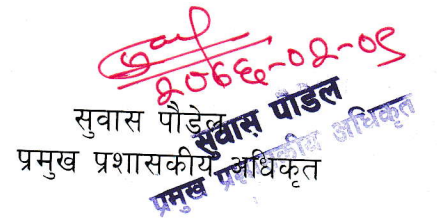 २०७६-०२-०९
सुवास पौडेल
प्रमुख प्रशासकीय अधिकृत
सुवास पौडेल
प्रमुख प्रशासकीय अधिकृत